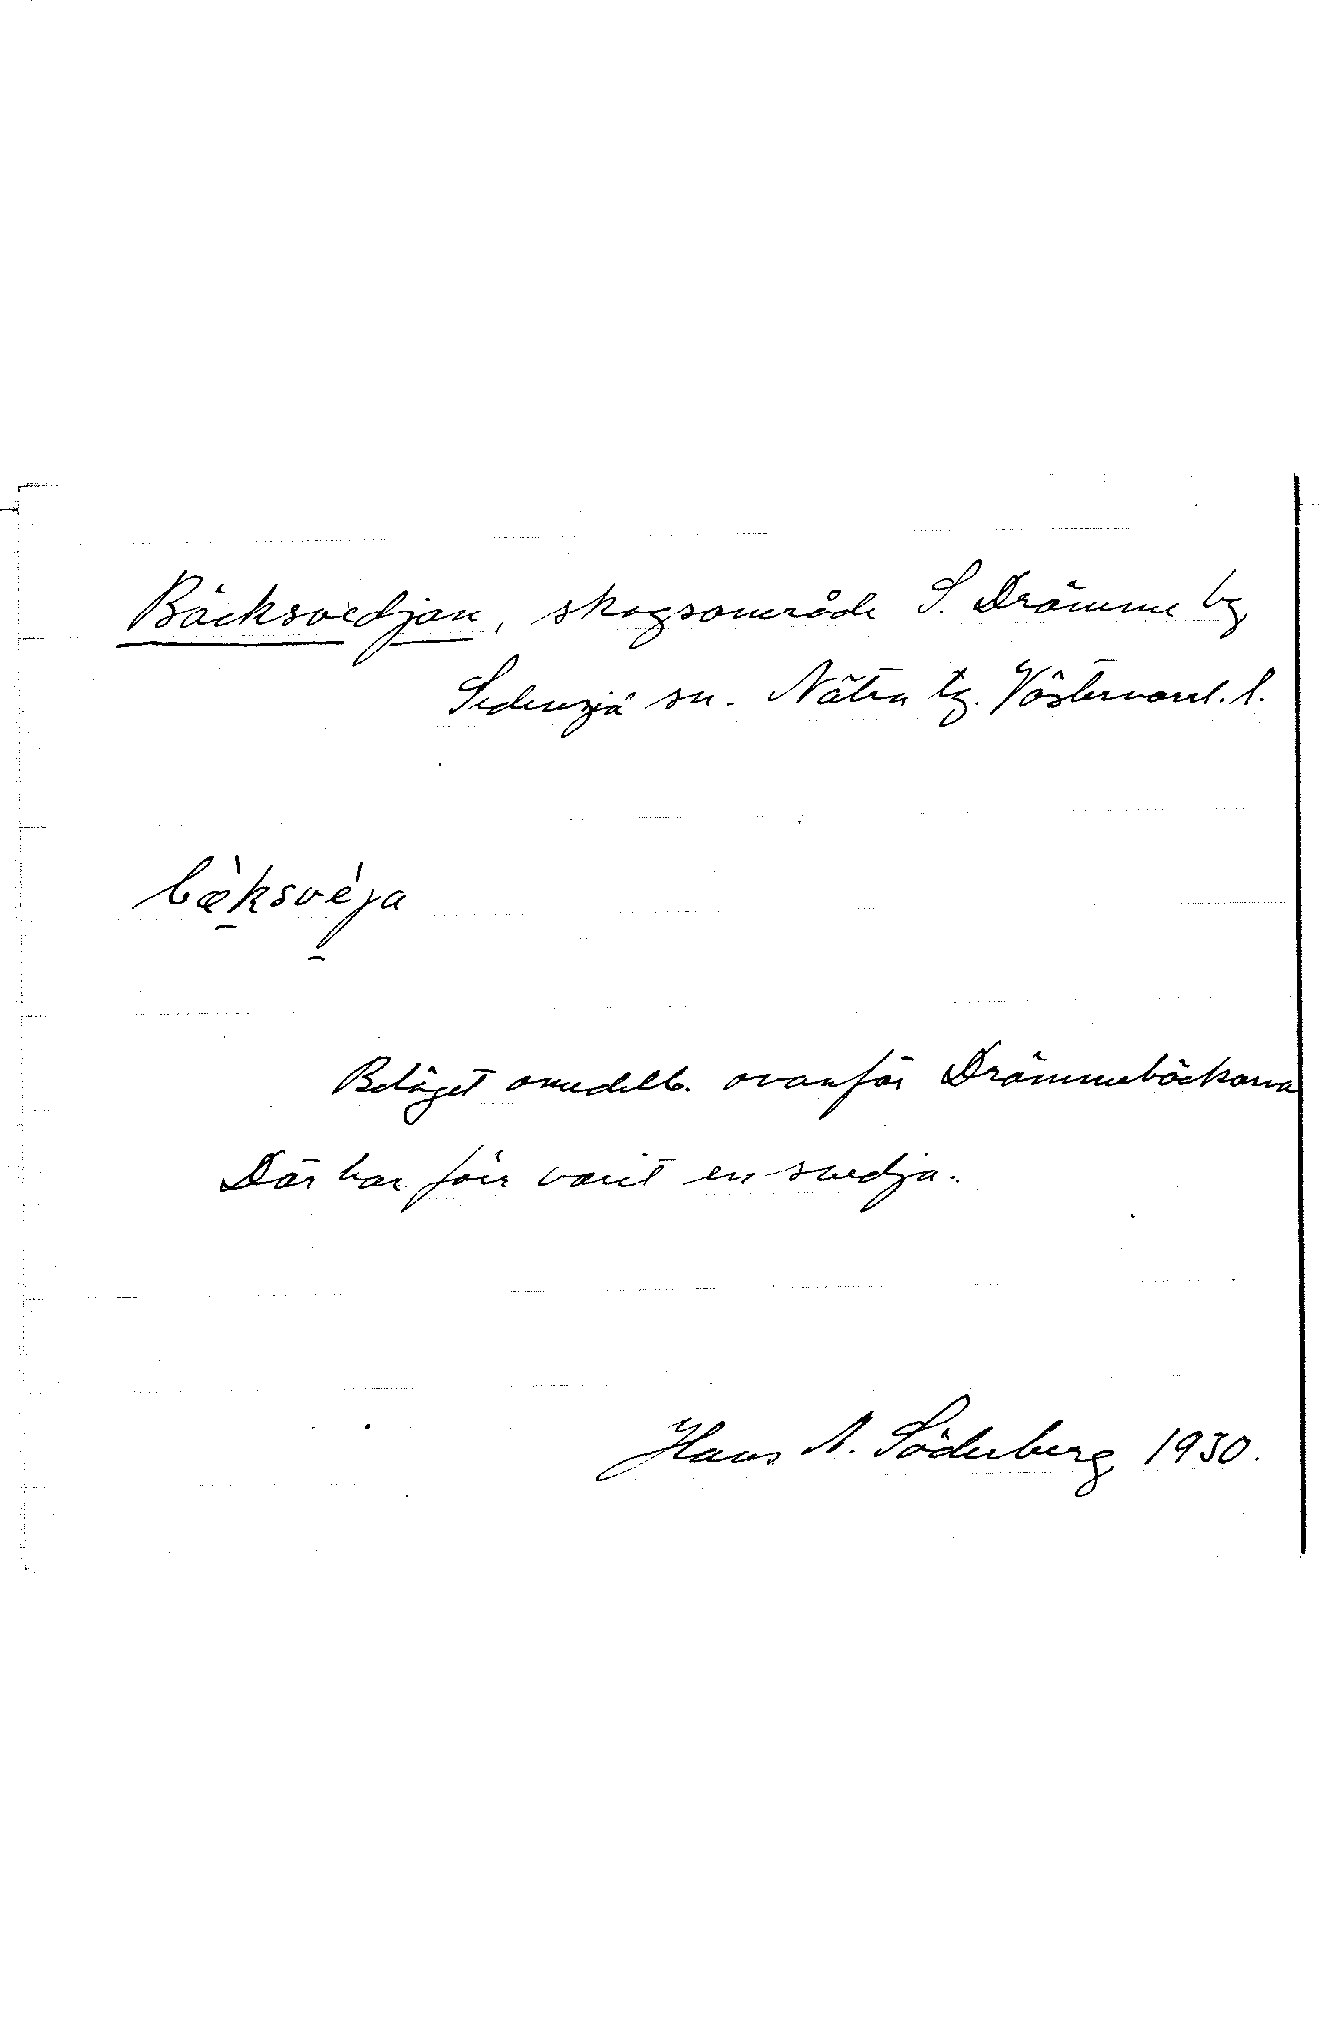 Bäcksvedjan, skogsområde S. Drömme by,
Sidensjö sn. Nätra tg. Västernorrl. l.
bæ̀ksvéja
Beläget omedelb. ovanför Drömmebäckarna
Där har förr varit en svedja.
Hans A. Söderberg 1930.